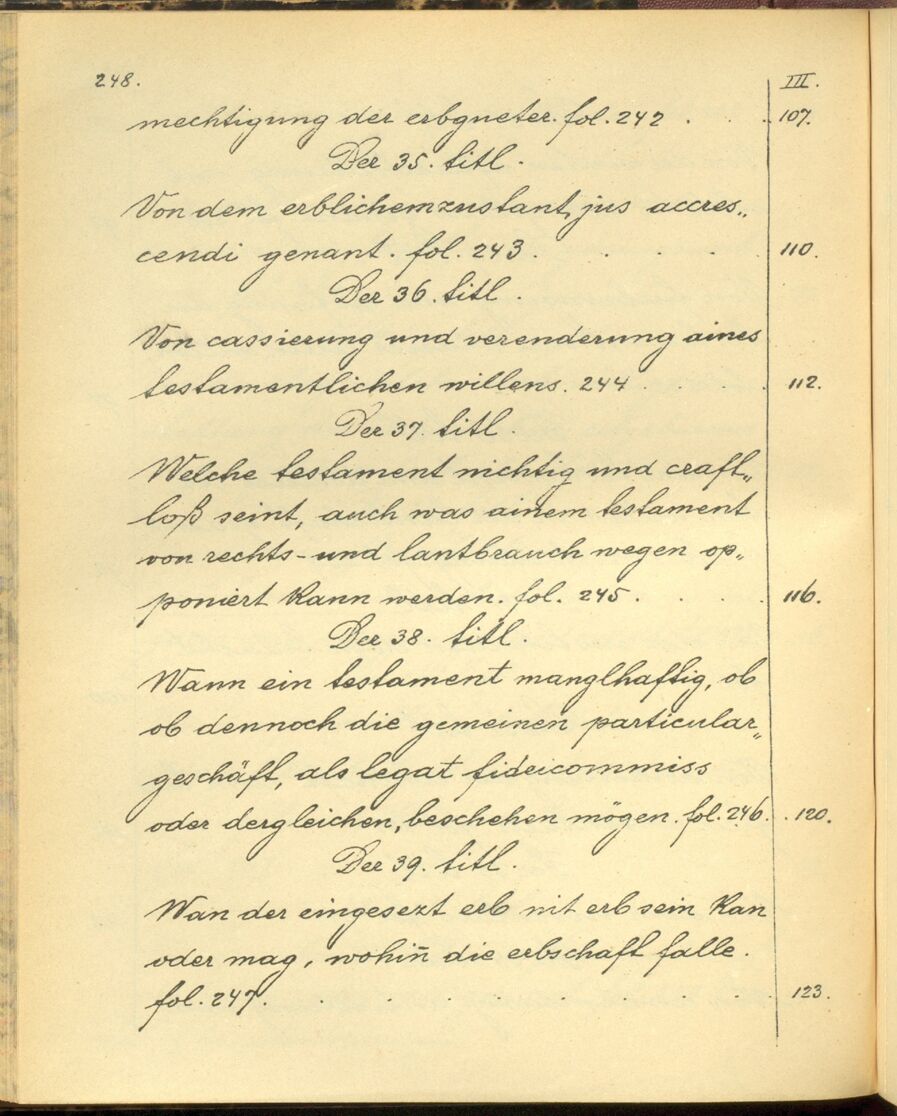 248. III.
mechtigung der erbgueter. fol. 242 . . . 107.
Der 35. titl.
Von dem erblichem zustant, jus accres„
cendi genant. fol. 243 . . . . . . 110.
Der 36. titl.
Von cassierung und verenderung aines
testamentlichen willens. 244 . . . . 112.
Der 37. titl.
Welche testament nichtig und craft„
loß seint, auch was ainem testament
von rechts- und lantbrauch wegen op„
poniert kann werden. fol. 245 . . . . 116.
Der 38. titl.
Wann ein testament manglhaftig, ob
ob dennoch die gemeinen particular„
geschäft, als legat fideicommiss
oder dergleichen, beschehen mögen. fol. 246. . 120.
Der 39. titl.
Wan der eingesezt erb nit erb sein kan
oder mag, wohin̄ die erbschaft falle.
fol. 247. . . . . . . . . . 123.